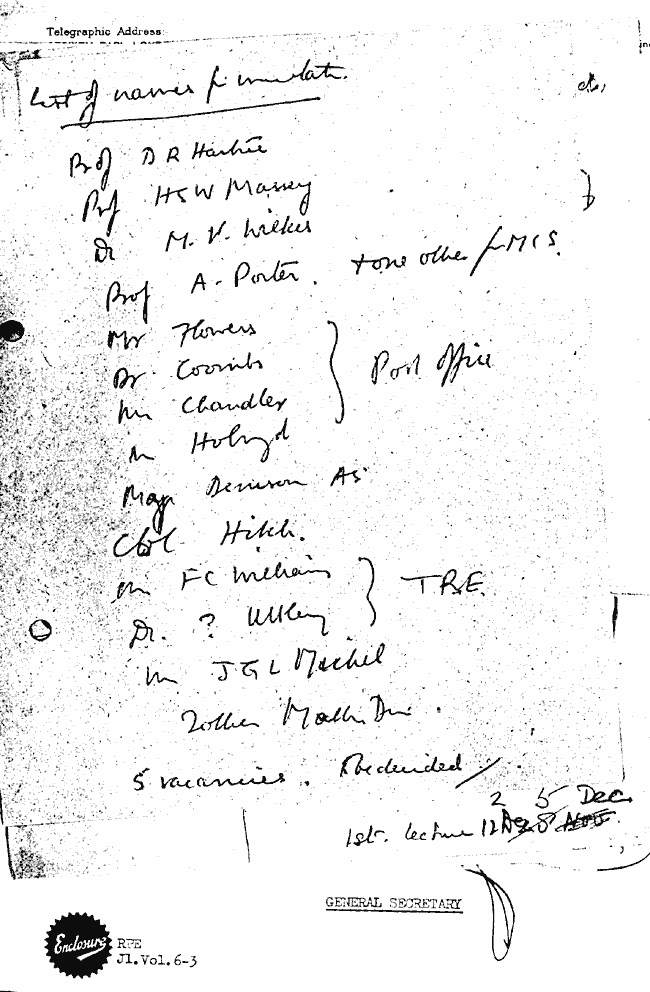 Telegraphic Address:
List of names for
Prof D R Hartree
Prof HSW Massey
Dr M. V. Wilkes
Prof A. Porter. + one other for MOS.
Mr Flowers
Dr Coombs
Mr Chandler
Post Office
Mr Holroyd
Major Denison AS
Col Hitch.
Mr FC Williams
Dr. ? Uttley
T.R.E.
Mr J G L Michel
2 other Maths Div.
5 vacancies. To be decided
2 5 Dec
1st. lecture 12
GENERAL SECRETARY
Enclosure
RPE
J1.Vol.6-3